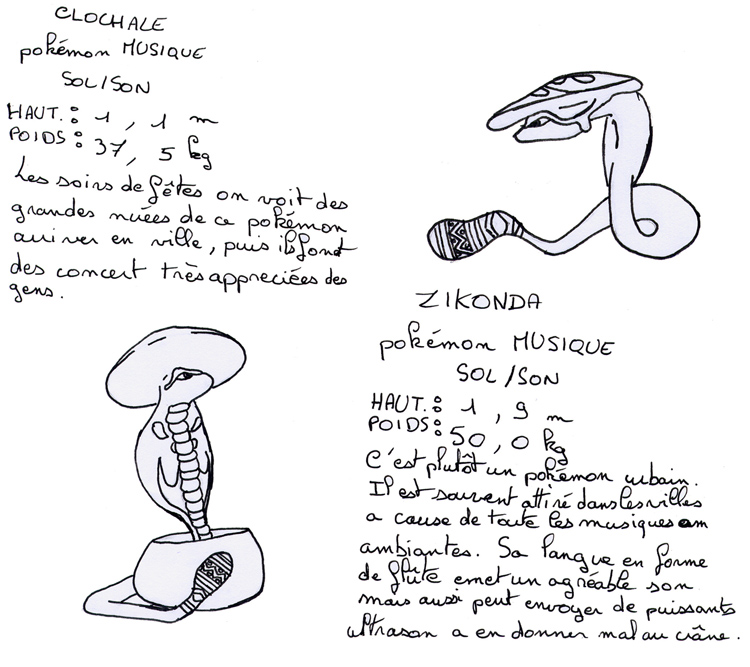 CLOCHALE
pokémon MUSIQUE
SOL/SON
HAUT. : 1 , 1 m
POIDS : 37, 5 kg
Les soirs de fêtes on voit des
grandes nuées de ce pokémon
arriver en ville, puis ils font
des concert très appreciées des
gens.
ZIKONDA
pokémon MUSIQUE
SOL/SON
HAUT. : 1 , 9 m
POIDS : 50, 0 kg
C'est plutôt un pokémon urbain.
Il est souvent attiré dans les villes
a cause de toute les musiques am
ambiantes. Sa langue en forme
de flûte emet un agréable son
mais aussi peut envoyer de puissants
ultrason a en donner mal au crâne.